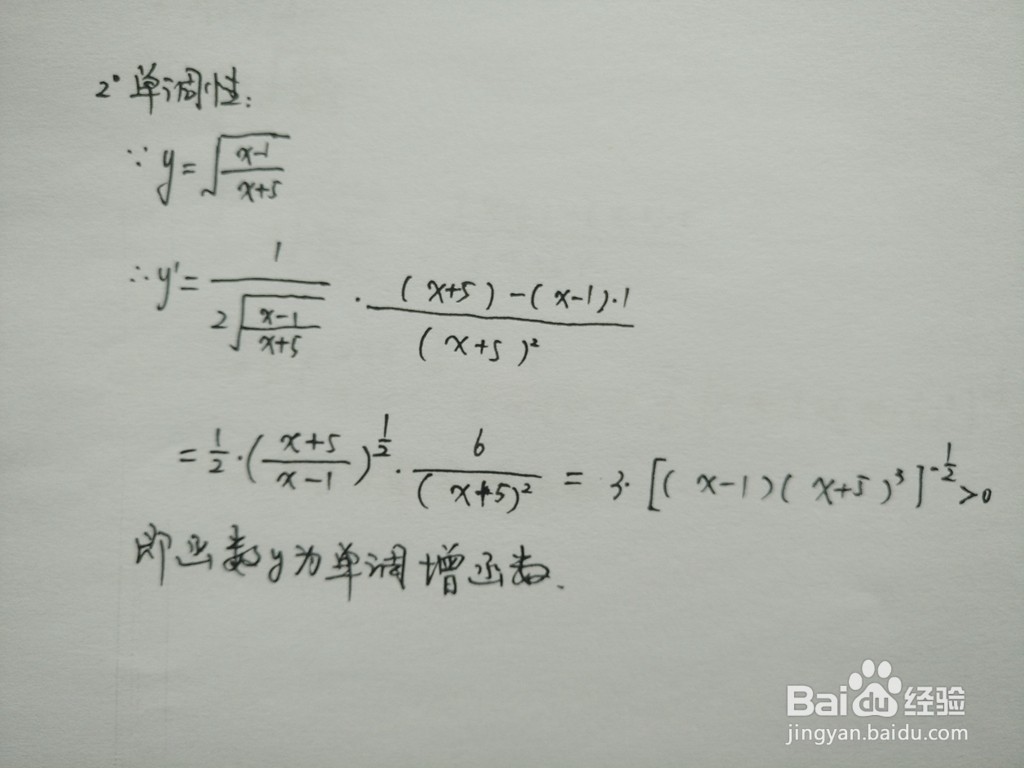 2° 单调性:
∵ y = √((x-1)/(x+5))
∴ y' = 1/(2√((x-1)/(x+5))) · ((x+5)-(x-1)·1)/(x+5)²
= 1/2·((x+5)/(x-1))^(1/2) · 6/(x+5)² = 3·[(x-1)(x+5)³]^(-1/2) >0
即函数y为单调增函数.
Bai du 经验
jingyan.baidu.com